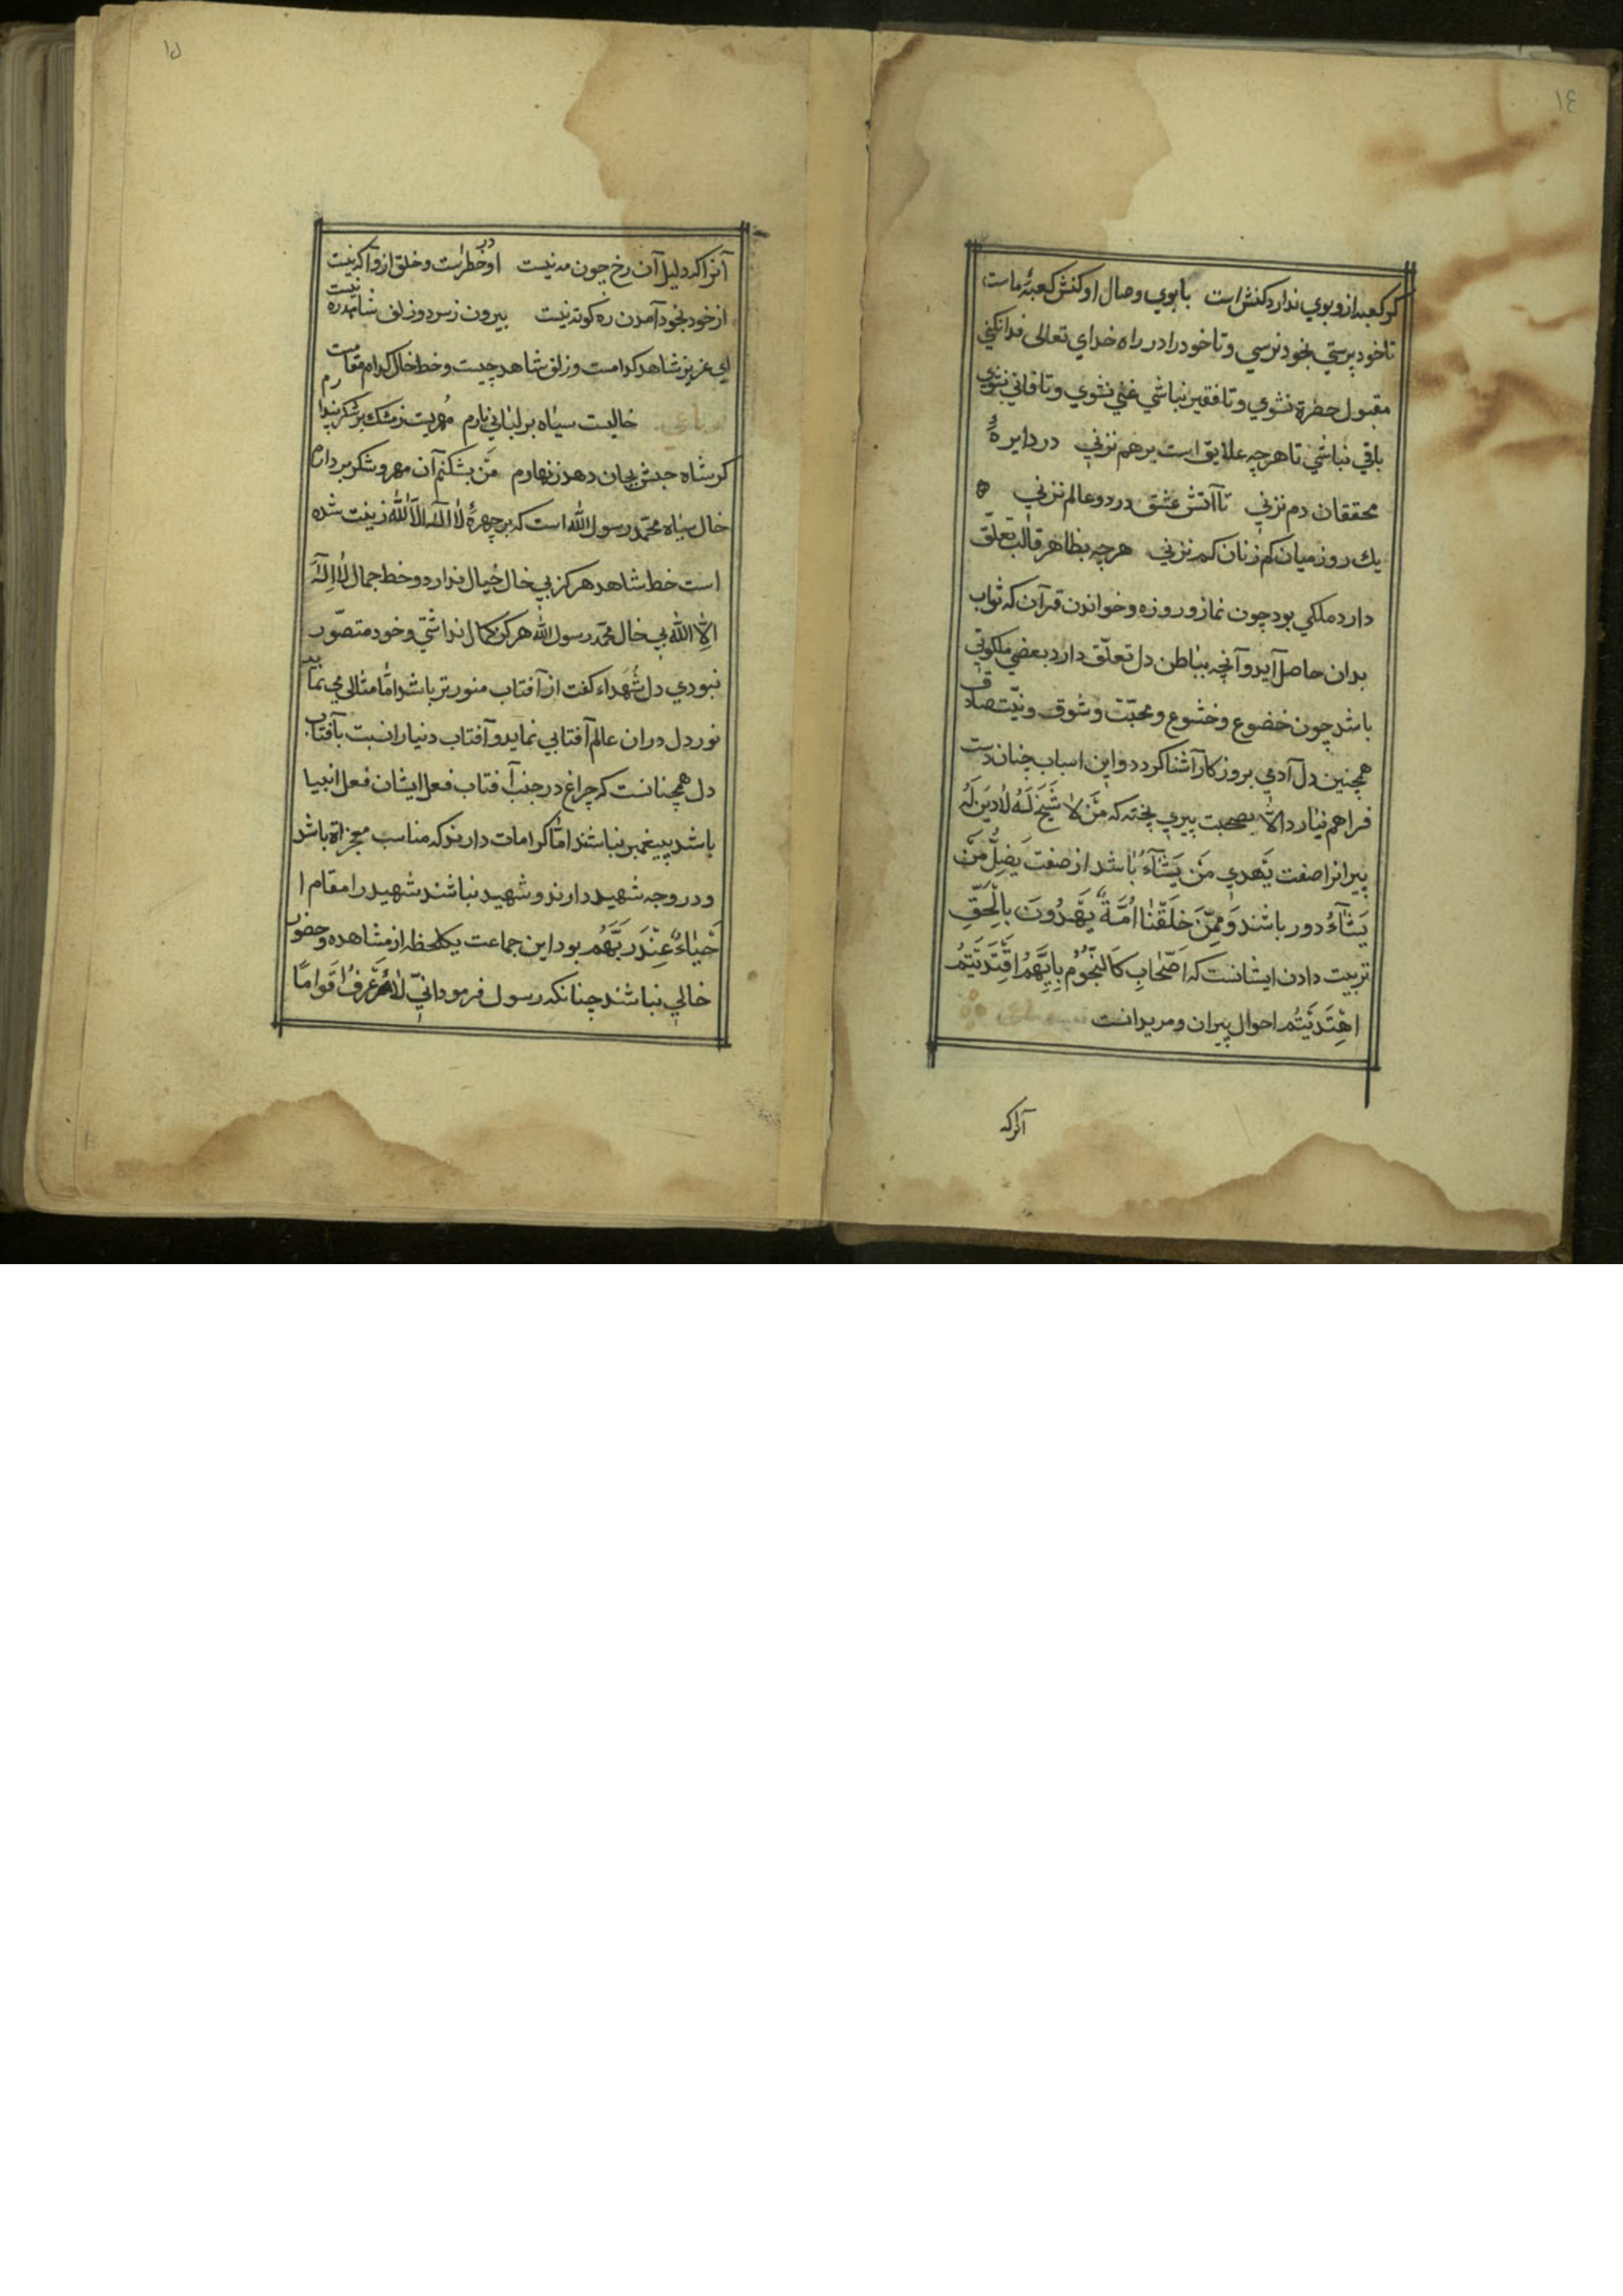 ١٤
کر کعبه ازو بوي ندارد کنش است بابوي وصال او کنش کعبهٔ ماست
تا خود پرستي بخود نرسي و تا خود را در راه خداي تعالى فدا نکني
مقبول حضرة نشوي و تا فقير نباشي غني نشوي و تا فاني نشوي
باقي نباشي تا هرچه علايق است برهم نزني در دايرهٔ
محققان دم نزني تا آتش عشق در دو عالم نزني
يك روز ميان کم زنان کم نزني هرچه بظاهر قالب تعلّق
دارد ملکي بود چون نماز و روزه و خواندن قرآن که ثواب
بدان حاصل آيد و آنچه بباطن دل تعلّق دارد بعضي ملکوتي
باشد چون خضوع و خشوع و محبّت و شوق و نيّت صادق
همچنين دل آدمي بروزکار آشنا کردد و اين اسباب چنان دست
فراهم نيارد الّا بصحبت پيري پخته که مَنْ لَا شَيْخَ لَهُ لَا دِينَ لَهُ
پيرانرا صفت يَهْدِي مَنْ يَشَآءُ باشد از صفت يُضِلُّ مَنْ
يَشَآءُ دور باشند وَمِمَّنْ خَلَقْنَا اُمَّةٌ يَهْدُونَ بِالْحَقِّ
تربيت دادن ايشانست که اَصْحَابِي کَالنُّجُوْمِ بِاَيِّهِمُ اقْتَدَيْتُمُ
اهْتَدَيْتُمْ احوال پيران و مريدانست
آنرا که
١٥
آنرا که دليل آن رخ چون مه نيست او در خطر است و خلق ازو آکه نيست
از خود بخود آمدن ره کوته نيست بيرون ز سر دو زلف شاهد ره نيست
اي عزيز شاهد کدامست و زلف شاهد چيست و خط خال کدام مقامست
خاليست سياه بر لبان يارم مُهريست ز مشك بر شکر پندارم
کر شاه حبش بجان دهد زنهارم مَن بشکنم آن مهر و شکر بردارم
خال سياه محمّد رسول الله است که بر چهرهٔ لا اله الّا الله زينت شده
است خط شاهد هرکز بي خال خيال ندارد و خط جمال لَا اِلٰهَ
اِلَّا الله بي خال محمّد رسول الله هرکز کمال نداشتي و خود متصوّر
نبودي دل شُهَداء کفت از آفتاب منورتر باشد امّا مثالى مي نمايد
نور دل در ان عالم آفتابي نمايد و آفتاب دنيا را نسبت بآفتاب
دل همچنانست که چراغ در جنب آفتاب فعل ايشان فعل انبيا
باشد پيغمبر نباشند امّا کرامات دارند که مناسب معجزاة باشد
و درجه شهيد دارند و شهيد نباشند شهيد را مقام ا
حْيَاءٌ عِنْدَ رَبِّهِمْ بود اين جماعت يکلحظه از مشاهده و حضور
خالي نباشند چنانکه رسول فرمود اِنِّي لَاَعْرِفُ اَقْوَامًا